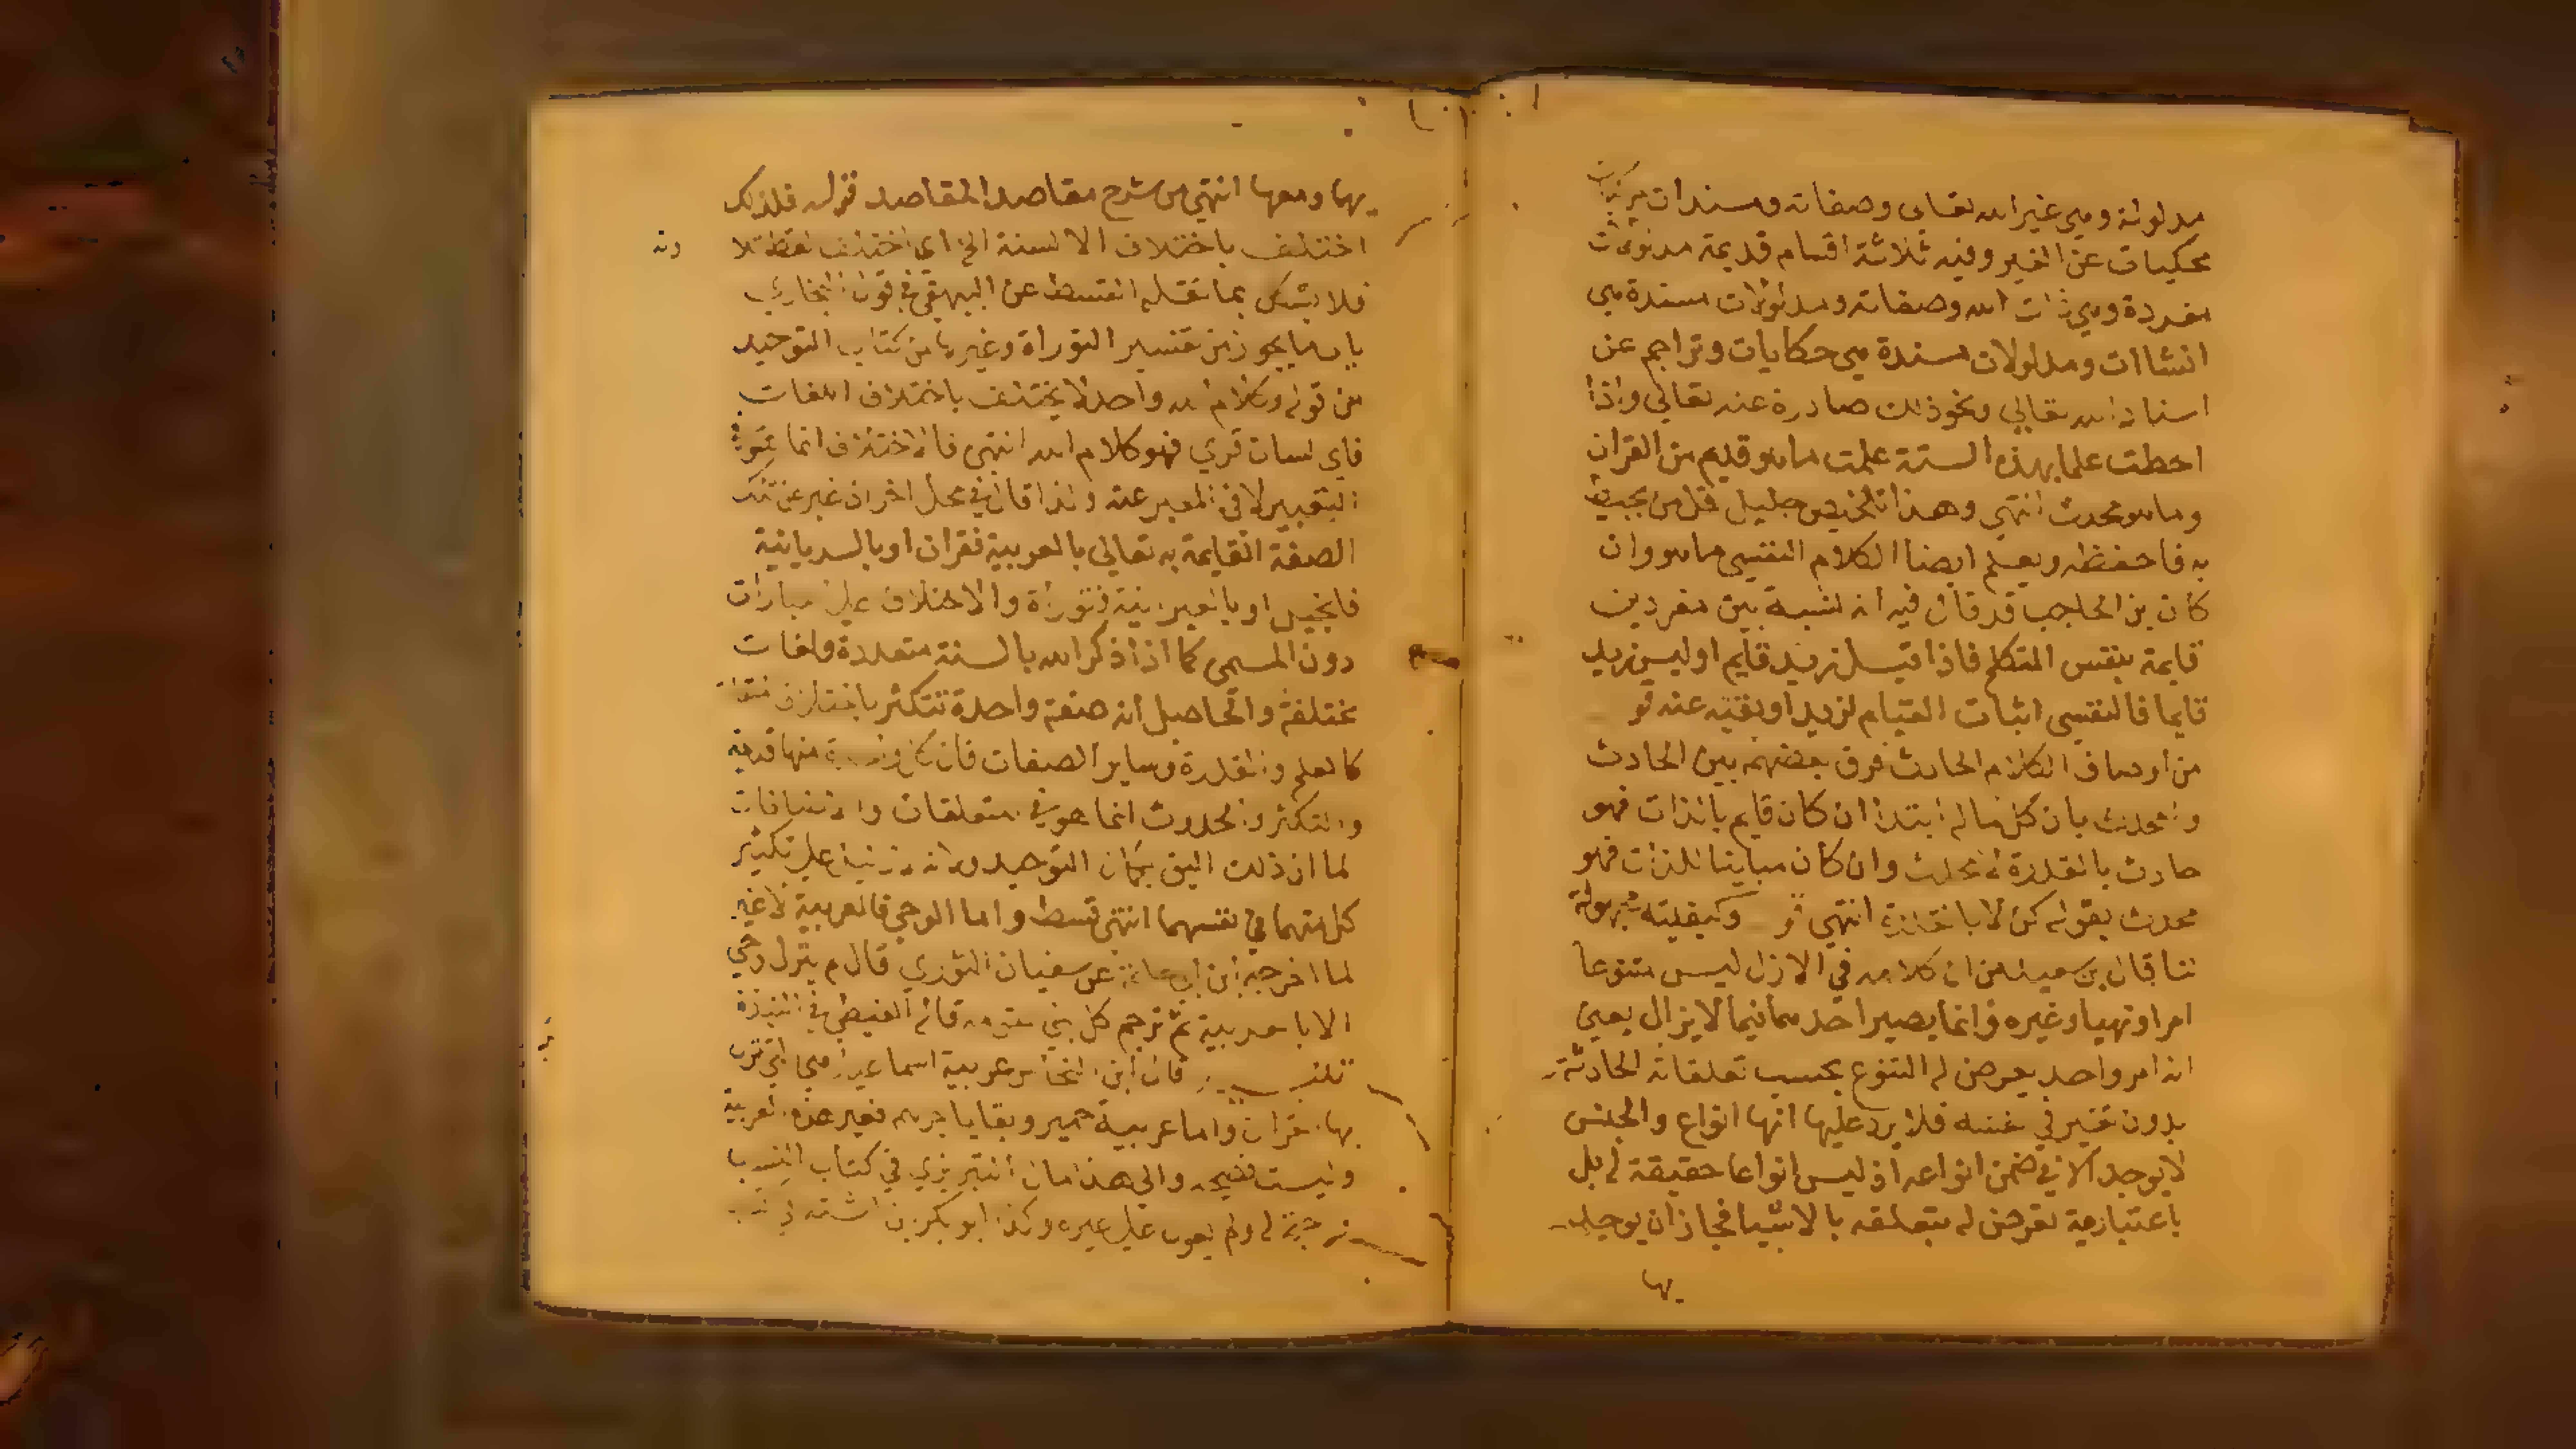 مدلولة وهي غير الله تعالى وصفاته ومسندات هي
محكيات عن الغير وفيه ثلاثة اقسام قديمة مدلولات
مفردة وهي ذات الله وصفاته ومدلولات مسندة هي
انشاات ومدلولات مسندة هي حكايات وتراجم عن
اسناد الله تعالي ونحو ذلك صادرة عنه تعالي واذا
احطت علما بهذه الستة علمت ما هو قديم من القران
وما هو محدث انتهي وهذا تلخيص جليل قل من يحيط
به فاحفظه ويعلم ايضا الكلام النفسي ما هو وان
كان بن الحاجب قد قال فيه انه نسبة بين مفردين
قايمة بنفس المتكلم فاذا قيل زيد قايم او ليس زيد
قايما فالنفسي اثبات القيام لزيد او نفيه عنه
من اوصاف الكلام الحادث فرق بعضهم بين الحادث
والمحدث بان كل ما له ابتدا ان كان قايم بالذات فهو
حادث بالقدرة لا محدث وان كان مباينا للذات فهو
محدث بقوله كن لا بالقدرة انتهي وكيفيته
قال بن سعيد من ان كلامه في الازل ليس متنوعا
امرا ونهيا وغيره وانما يصير احد هما فيما لا يزال يعني
انه امر واحد يعرض له التنوع بحسب تعلقاته الحادثة
بدون تغير في نفسه فلا يرد عليها انها انواع والجنس
لا يوجد الا في ضمن انواعه اذ ليس انواعا حقيقة له بل
باعتبارية تعرض له بتعلقه بالاشيا فجاز ان يوجد
بها
بها ومعها انتهي من شرح مقاصد المقاصد قوله فلذلك
اختلف باختلاف الالسنة الخ اي اختلف لفظه
فلا يشكل بما نقله القسط عن البيهقي في قول البخاري
باب ما يجوز من تفسير التوراة وغيرها من كتاب التوحيد
من قوله وكلام الله واحد لا يختلف باختلاف اللغات
فاي لسان قري فهو كلام الله انتهي فالاختلاف انما هو في
التعبير لا في المعبر عنه ولذا قال في محل اخر ان عبر عن تلك
الصفة القايمة به تعالي بالعربية فقران او بالسريانية
فانجيل او بالعبرانية فتوراة والاختلاف علي العبارات
دون المسمي كما اذا ذكر الله بالسنة متعددة ولغات
مختلفة والحاصل انه صفة واحدة تتكثر باختلاف
كالعلم والقدرة وساير الصفات فان كل واحدة منها قديمة
والتكثر والحدوث انما هو في التعلقات والاضافات
لما ان ذلك اليق بكمال التوحيد ولانه لا دليل علي تكثر
كل منهما في نفسها انتهي قسط واما الوحي فالعربية لا غير
لما اخرجه ابن ابي حاتم عن سفيان الثوري قال لم ينزل وحي
الا بالعربية ثم ترجم كل نبي لقومه قاله الغيطي في
قال ابن النحاس عربية اسماعيل هي التي نزل
بها القران واما عربية حمير وبقايا جرهم فغير هذه العربية
وليست فصيحة والي هذا مال الزبيري في كتاب النسب
ولم يعول علي غيره وكذا ابو بكر بن اشته في